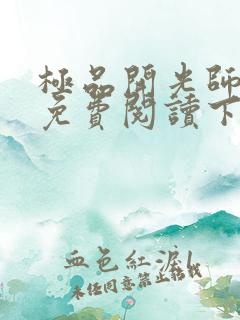 極品開光師
免費閱讀下
血色紅淚l
未经同意禁止转载